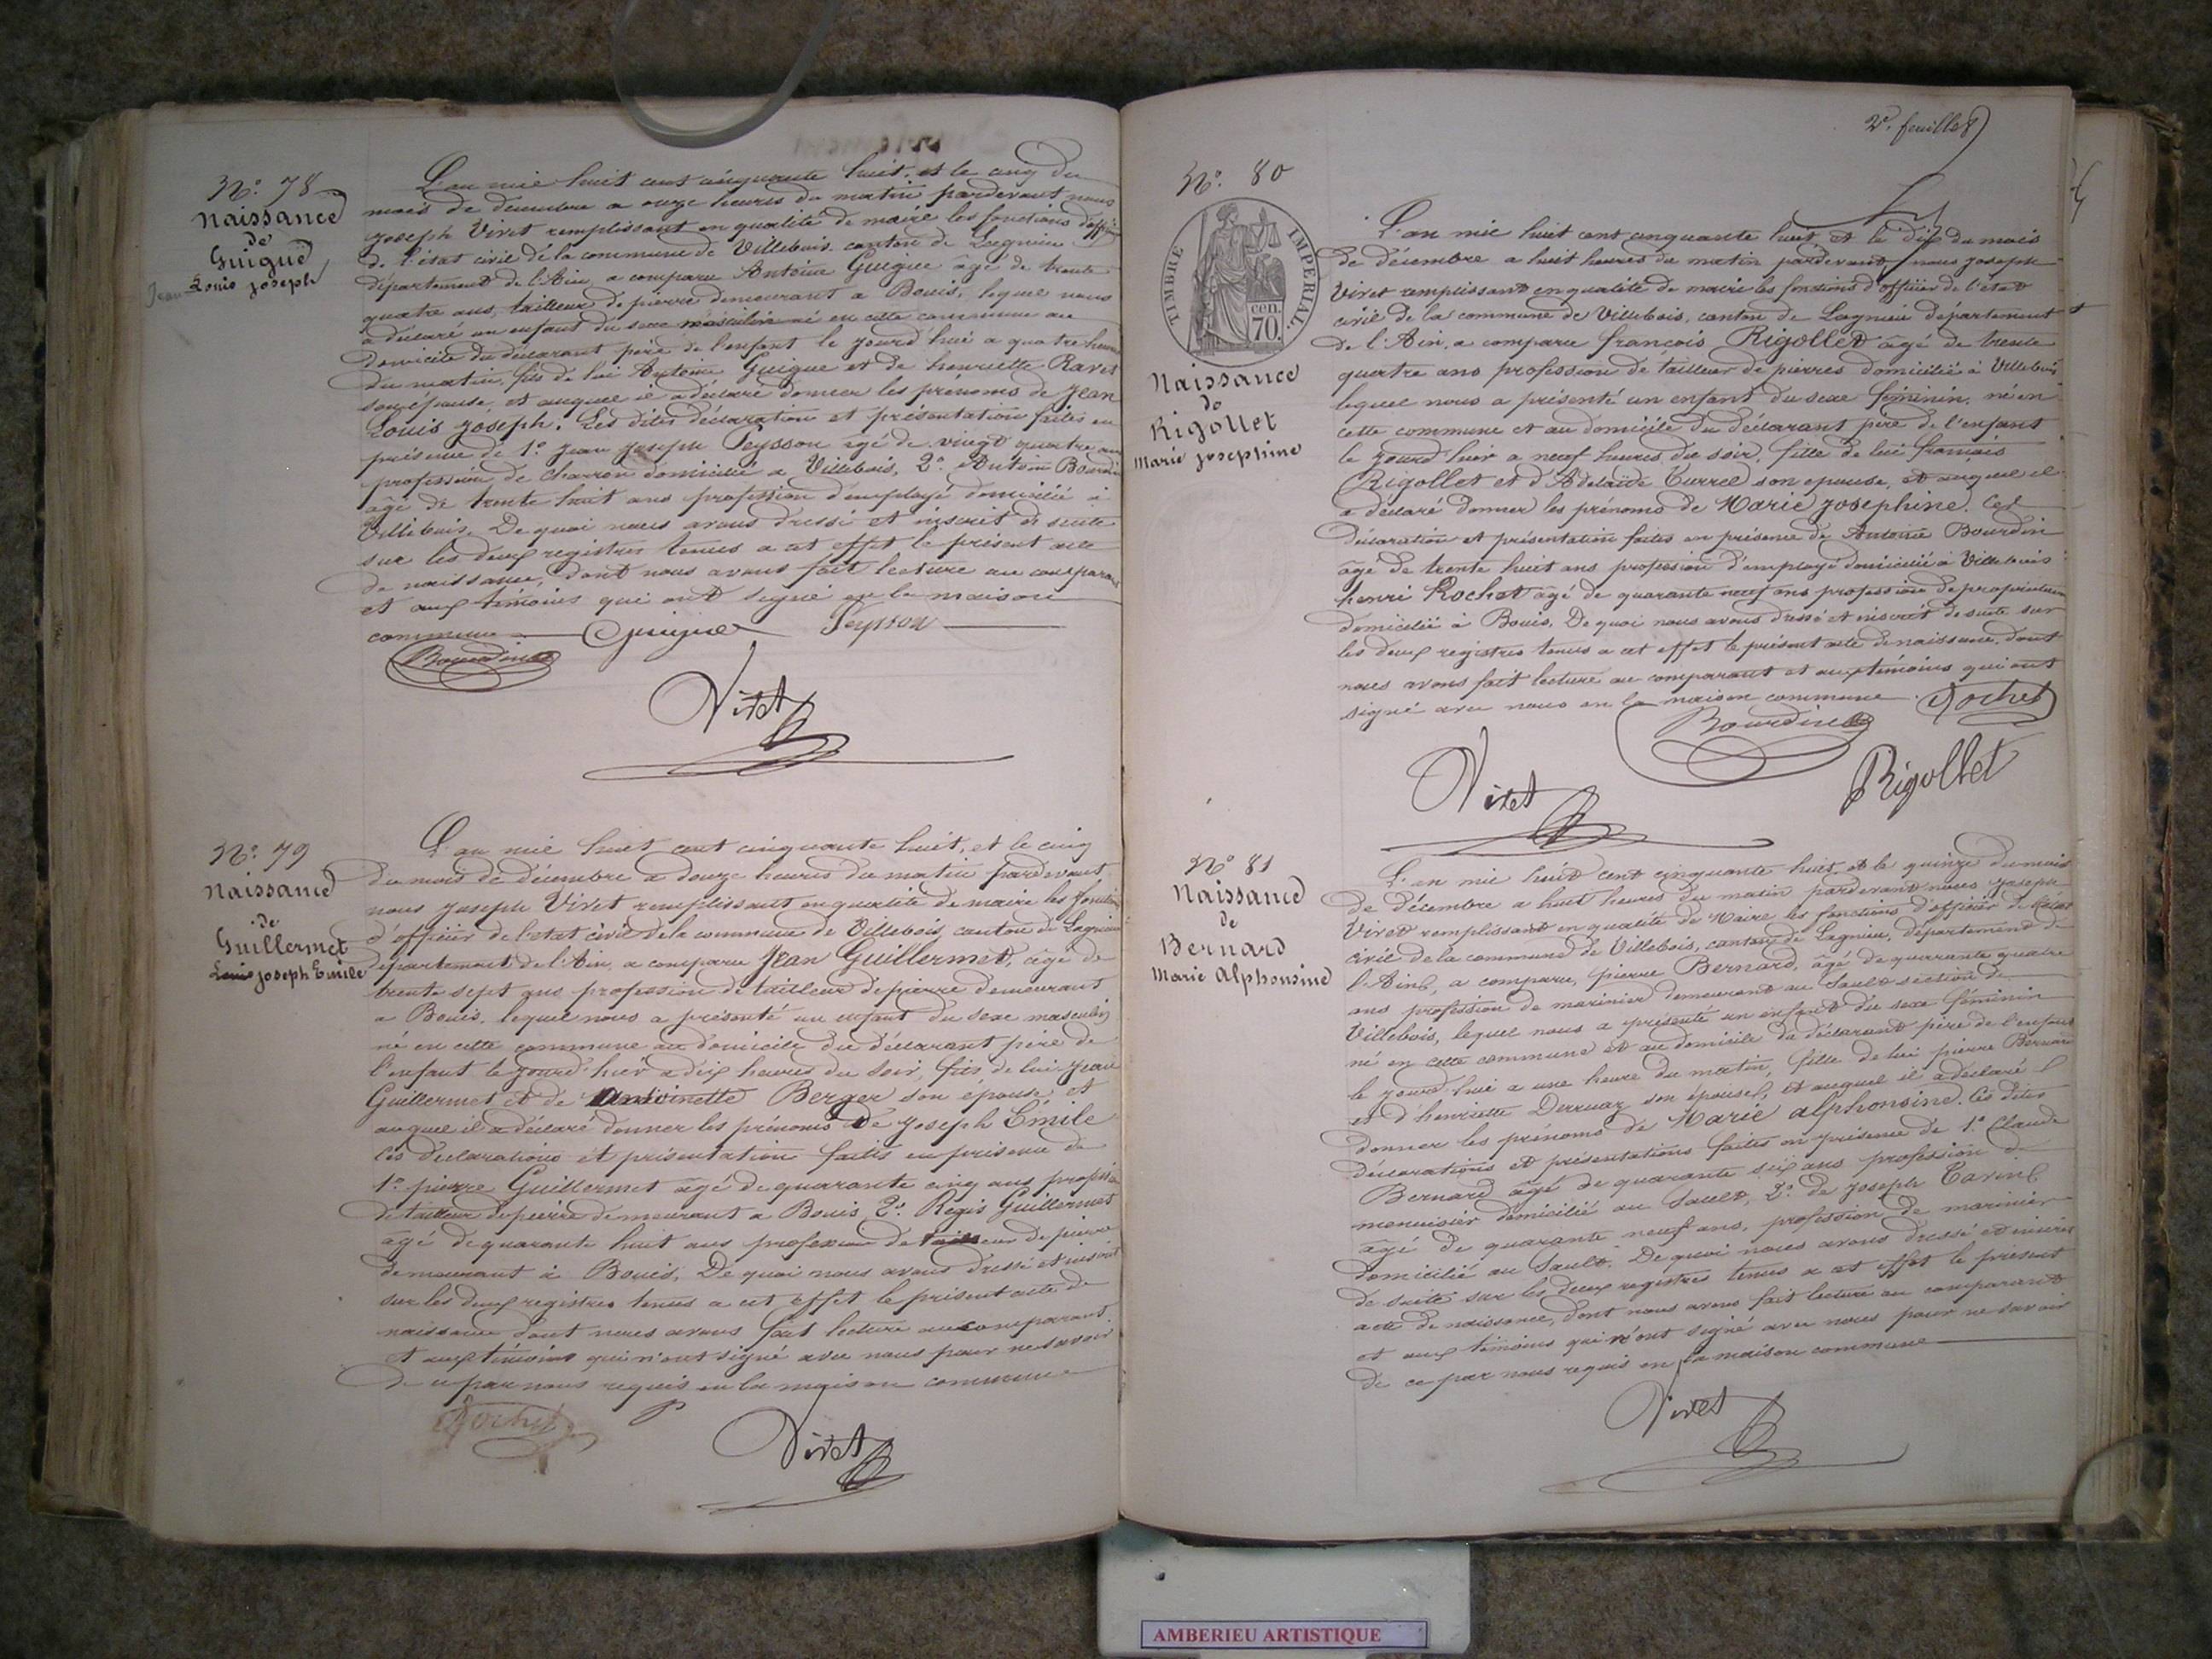 N° 78
Naissance
de
Guigue
Jean Louis joseph
L'an mil huit cent cinquante huit, et le cinq du
mois de décembre a onze heures du matin pardevant nous
joseph Viret remplissant en qualité de maire les fonctions d'officier
de l'état civil de la commune de Villebois canton de Lagnieu
département de l'Ain a comparu Antoine Guigue âgé de trente
quatre ans, tailleur de pierre demeurant a Bouis, lequel nous
a déclaré un enfant du sexe masculin né en cette commune au
domicile du déclarant père de l'enfant le jourd'hui a quatre heures
du matin, fils de lui Antoine Guigue et de henriette Ravet
son épouse, et auquel il a déclaré donner les prénoms de Jean
Louis joseph. Les dites déclaration et présentation faites en
présence de 1° jean joseph Peysson agé de vingt quatre ans
profession de charron domicilié a Villebois, 2° Antoine Bourdin
âgé de trente huit ans profession d'employé domicilié à
Villebois. De quoi nous avons dressé et inscrit de suite
sur les deux registres tenus a cet effet le présent acte
de naissance, dont nous avons fait lecture au comparant
et aux témoins qui ont signé en la maison
commune Guigue Peysson
Bourdin
Viret
N° 79
Naissance
de
Guillermet
Louis joseph Emile
L'an mil huit cent cinquante huit, et le cinq
du mois de décembre a douze heures du matin pardevant
nous joseph Viret remplissant en qualité de maire les fonctions
d'officier de l'etat civil de la commune de Villebois canton de Lagnieu
département de l'Ain, a comparu Jean Guillermet, âgé de
trente sept ans profession de tailleur de pierre demeurant
a Bouis, lequel nous a présenté un enfant du sexe masculin
né en cette commune au domicile du déclarant père de
l'enfant le jourd'hier a dix heures du soir, fils de lui jean
Guillermet et de Antoinette Berger son épouse et
auquel il a déclaré donner les prénoms De joseph Emile
Les déclarations et présentation faites en présence de
1° pierre Guillermet âgé de quarante cinq ans profession
de tailleur de pierre demeurant a Bouis 2° Régis Guillermet
agé de quarante huit ans profession de tailleur de pierre
demeurant à Bouis, De quoi nous avons dressé et inscrit
sur les deux registres tenus a cet effet le présent acte de
naissance dont nous avons fait lecture au comparant
et aux témoins qui n'ont signé avec nous pour ne savoir
de ce par nous requis en la maison commune
Rochet
Viret
2e. feuillet
N° 80
TIMBRE IMPERIAL
70 cen.
Naissance
de
Rigollet
Marie josephine
L'an mil huit cent cinquante huit, et le dix du mois
de décembre a huit heures du matin pardevant nous joseph
Viret remplissant en qualité de maire les fonctions d'officier de l'état
civil de la commune de Villebois, canton de Lagnieu département
de l'Ain, a comparu françois Rigollet âgé de trente
quatre ans profession de tailleur de pierres domicilié à Villebois
lequel nous a présenté un enfant du sexe féminin, né en
cette commune et au domicile du déclarant père de l'enfant
le jourd'hier a neuf heures du soir, fille de lui françois
Rigollet et d'Adelaïde Turrel son epouse, et auquel il
a déclaré donner les prénoms de Marie josephine. Les
déclaration et présentation faites en présence de Antoine Bourdin
âgé de trente huit ans profession d'employé domicilié à Villebois
henri Rochet âgé de quarante neuf ans profession de propriétaire
domicilié à Bouis. De quoi nous avons dressé et inscrit de suite sur
les deux registres tenus a cet effet le présent acte de naissance, dont
nous avons fait lecture au comparant et aux témoins qui ont
signé avec nous en la maison commune. Rochet
Bourdin
Viret
Rigollet
N° 81
Naissance
de
Bernard
Marie Alphonsine
L'an mil huit cent cinquante huit, et le quinze du mois
de décembre a huit heures du matin pardevant nous joseph
Viret remplissant en qualité de Maire les fonctions d'officier de l'état
civil de la commune de Villebois, canton de Lagnieu, département de
l'Ain, a comparu, pierre Bernard, âgé de quarante quatre
ans profession de marinier demeurant au Sault section de
Villebois, lequel nous a présenté un enfant du sexe féminin
né en cette commune et au domicile du déclarant père de l'enfant
le jourd'hui a une heure du matin, fille de lui pierre Bernard
et d'henriette Derruaz son épouse, et auquel il a déclaré
donner les prénoms de Marie alphonsine. Les dites
déclarations et présentations faites en présence de 1° Claude
Bernard âgé de quarante six ans profession de
menuisier domicilié au Sault, 2° de joseph Tavinl
âgé de quarante neuf ans, profession de marinier
domicilié au Sault. De quoi nous avons dressé et inscrit
de suite sur les deux registres tenus a cet effet le present
acte de naissance, dont nous avons fait lecture au comparant
et aux témoins qui n'ont signé avec nous pour ne savoir
de ce par nous requis en la maison commune
Viret
AMBERIEU ARTISTIQUE